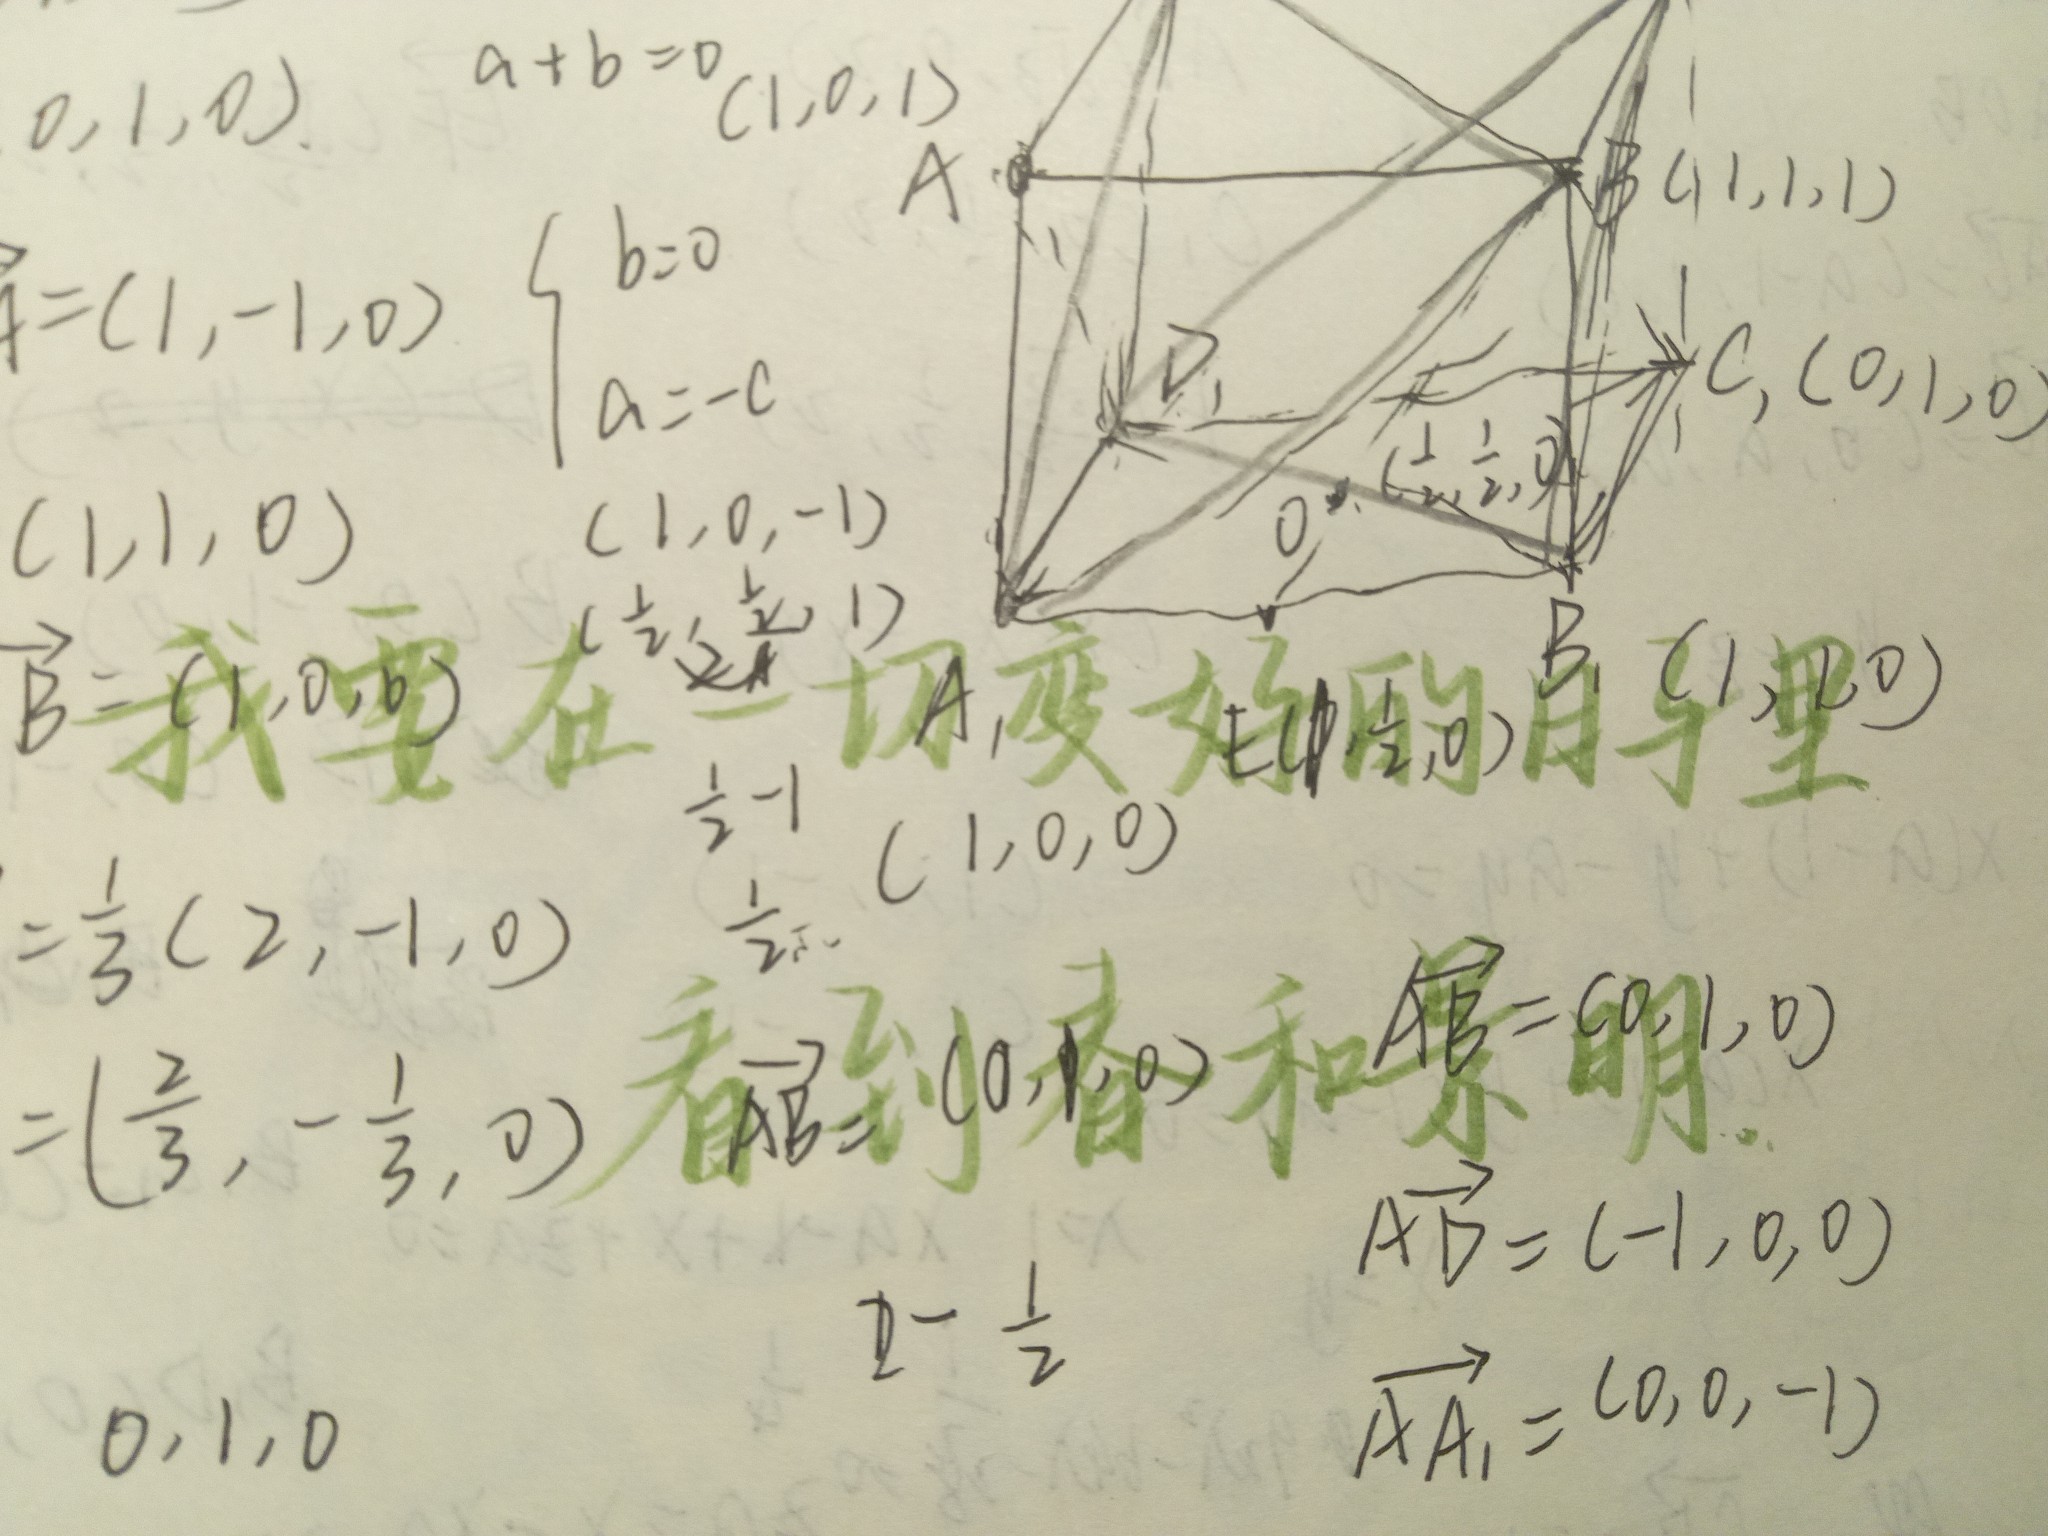 a+b=0
0,1,0)
(1,0,1)
A
B(1,1,1)
=(1,-1,0)
b=0
a=-c
D₁
C₁(0,1,0)
(1/2,1/2,0)
O
(1,1,0)
(1,0,-1)
B=(1,0,b)
A₁
B₁(1,1,0)
1/2-1
(1,0,0)
我要在一切变好的日子里
=1/3(2,-1,0)
1/2
看到春和景明
AB=(0,1,0)
AB=(0,1,0)
=(2/3,-1/3,0)
AD=(-1,0,0)
AA₁=(0,0,-1)
0,1,0